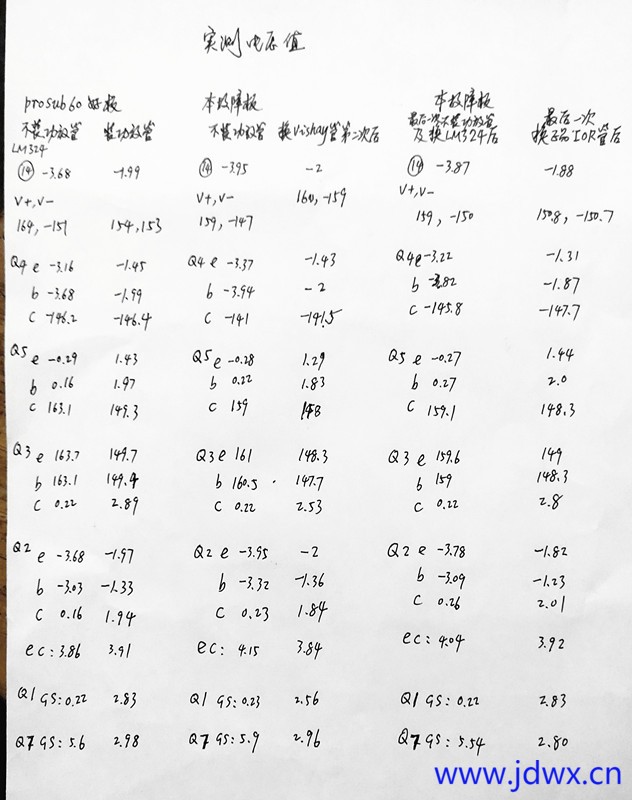 实测电压值
prosub60好板 本故障板 本故障板 最后一次
不装功放管 装功放管 不装功放管 换Vishay管第二次后 最后一次不装功放管及换LM324后 换正品IOR管后
LM324
⑭ -3.68 -1.99 ⑭ -3.95 -2 ⑭ -3.87 -1.88
V+,V- 160,-159 V+,V-
164,-151 154,153 159,-147 159,-150 150.8,-150.7
Q4 e -3.16 -1.45 Q4 e -3.37 -1.43 Q4e -3.22 -1.31
b -3.68 -1.99 b -3.94 -2 b -3.82 -1.87
c -146.2 -146.4 c -141 -141.5 c -145.8 -147.7
Q5 e -0.29 1.43 Q5 e -0.28 1.29 Q5 e -0.27 1.44
b 0.16 1.97 b 0.22 1.83 b 0.27 2.0
c 163.1 149.3 c 159 148 c 159.1 148.3
Q3 e 163.7 149.7 Q3 e 161 148.3 Q3 e 159.6 149
b 163.1 149.4 b 160.5 147.7 b 159 148.3
c 0.22 2.89 c 0.22 2.53 c 0.22 2.8
Q2 e -3.68 -1.97 Q2 e -3.95 -2 Q2 e -3.78 -1.82
b -3.03 -1.33 b -3.32 -1.36 b -3.09 -1.23
c 0.16 1.94 c 0.23 1.84 c 0.26 2.01
ec: 3.86 3.91 ec: 4.15 3.84 ec: 4.04 3.92
Q1 GS: 0.22 2.83 Q1 GS: 0.23 2.56 Q1 GS: 0.22 2.83
Q7 GS: 5.6 2.98 Q7 GS: 5.9 2.96 Q7 GS: 5.54 2.80
www.jdwx.cn